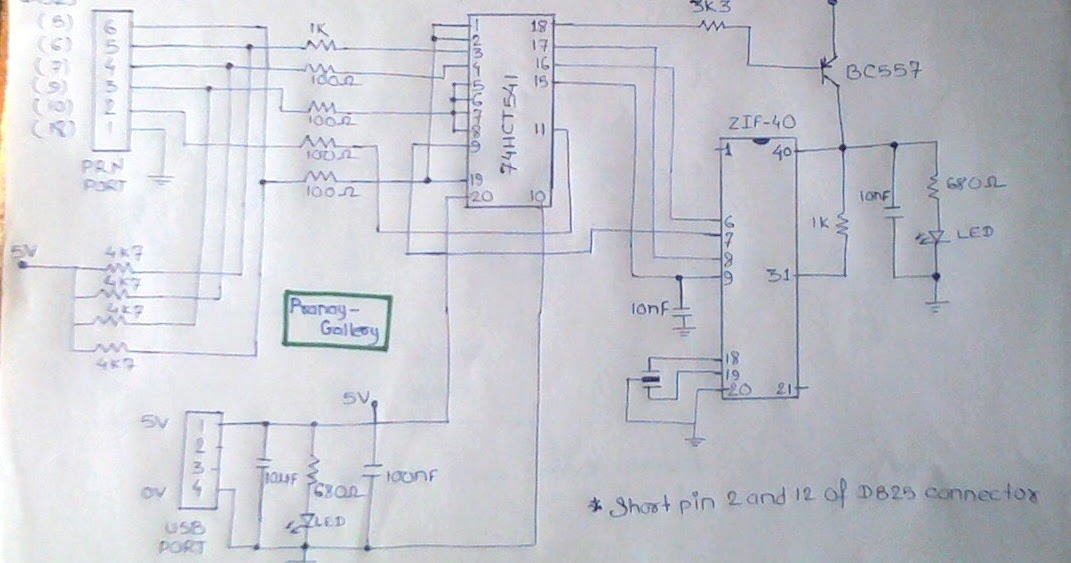 (5) 6
(6) 5
(7) 4
(9) 3
(10) 2
(18) 1
PRN
PORT
1K
100Ω
100Ω
100Ω
100Ω
1
2
3
4
5
6
7
8
9
19
20
74HCT541
18
17
16
15
11
10
3K3
BC557
ZIF-40
1
40
6
7
8
9
31
18
19
20
21
1K
10nF
680Ω
LED
10nF
5V
4K7
4K7
4K7
4K7
Pranay-
Gallery
5V
5V 1
2
3
0V 4
USB
PORT
10uF
680Ω
LED
100nF
* Short pin 2 and 12 of DB25 connector